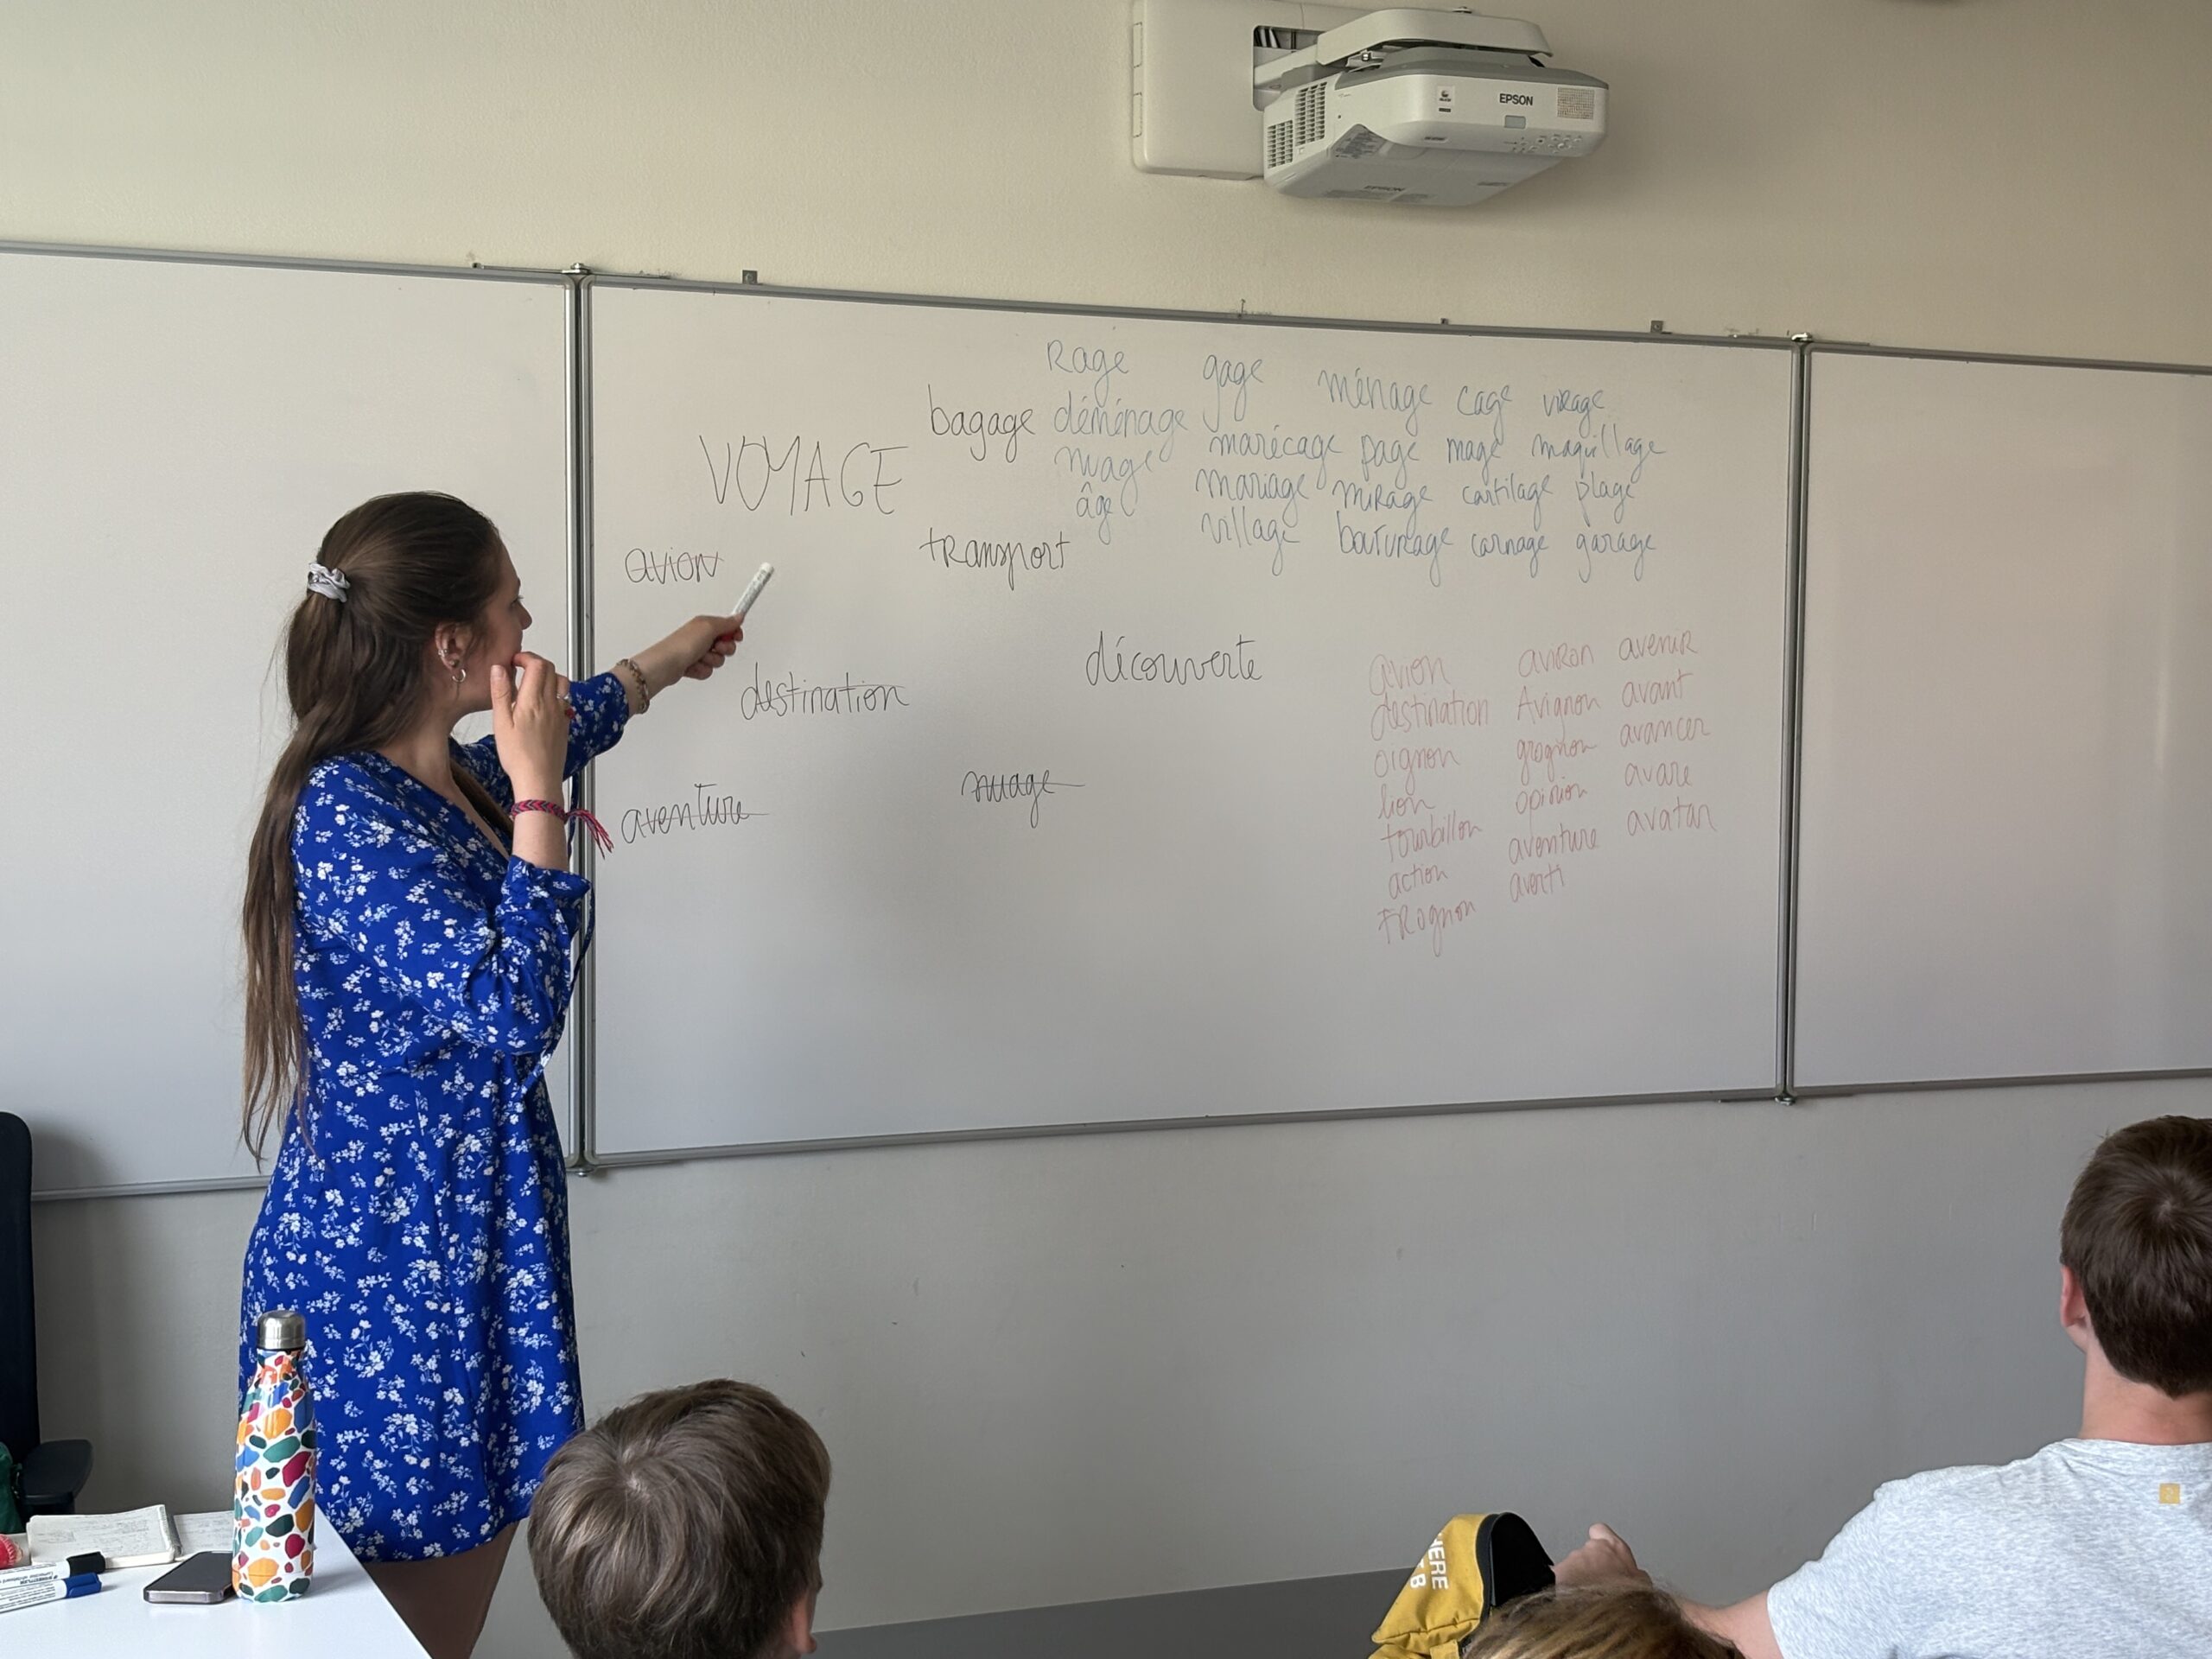 EPSON
EPSON
Rage gage ménage cage virage
bagage déménage marécage page mage maquillage
VOYAGE nuage mariage mirage cartilage plage
âge village bouturage carnage garage
avion transport
destination découverte
aventure nuage
avion aviron avenir
destination Avignon avant
oignon grognon avancer
lion opinion avare
tourbillon aventure avatar
action averti
trognon
HERE